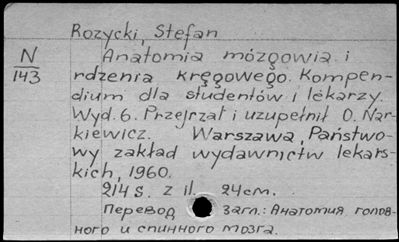 Rozycki, Stefan
N
143
Anatomia mózgowia i
rdzenia kręgowego. Kompen-
dium dla studentów i lekarzy.
Wyd. 6. Przejrzał i uzupełnił O. Nar-
kiewicz. Warszawa, Państwo-
wy zakład wydawnictw lekars-
kich, 1960.
214 s. z il. 24 cm.
Перевод загл.: Анатомия голов-
ного и спинного мозга.